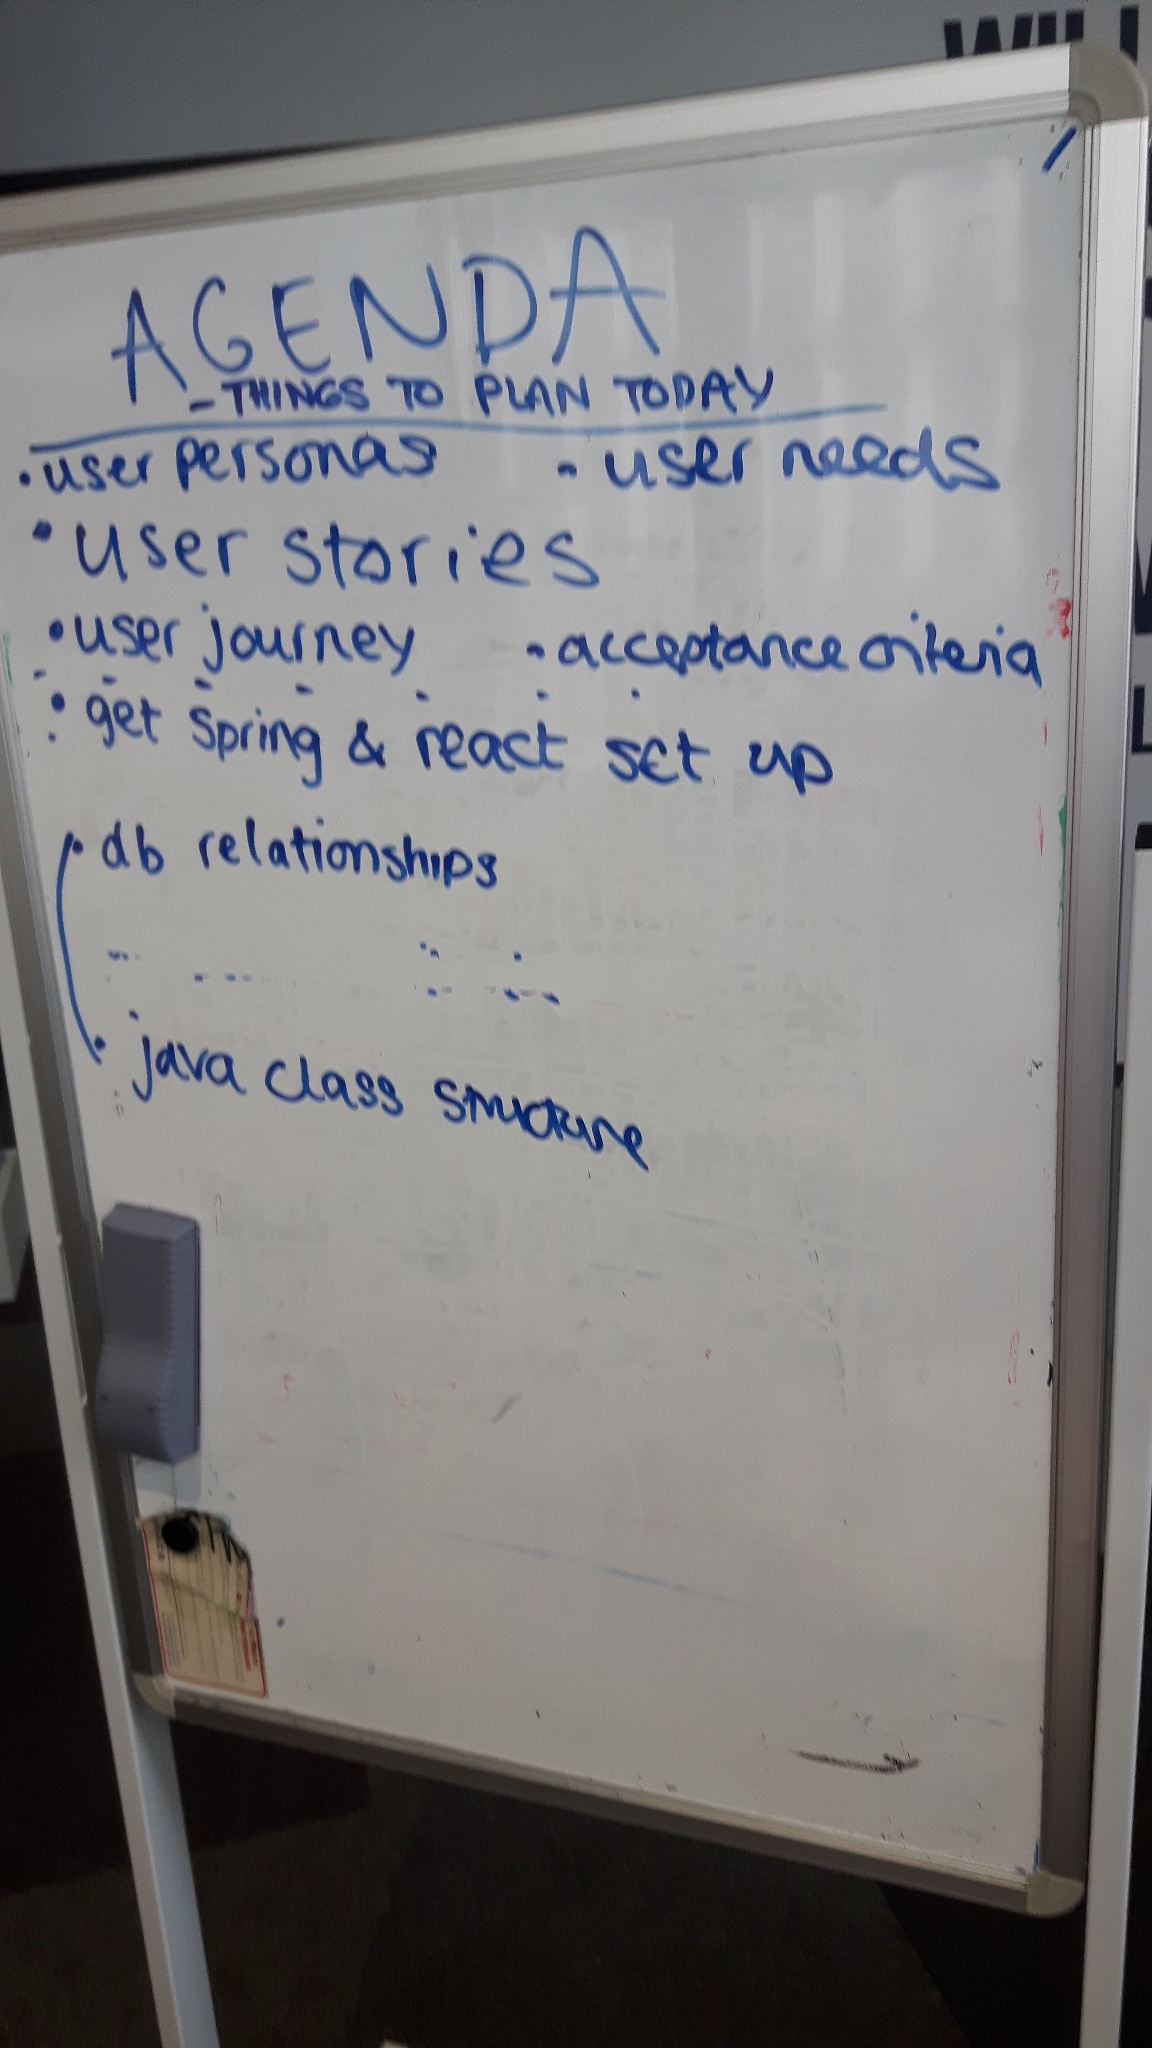 AGENDA
- THINGS TO PLAN TODAY
• user personas - user needs
• user stories
• user journey - acceptance criteria
• get spring & react set up
• db relationships
• java class structure